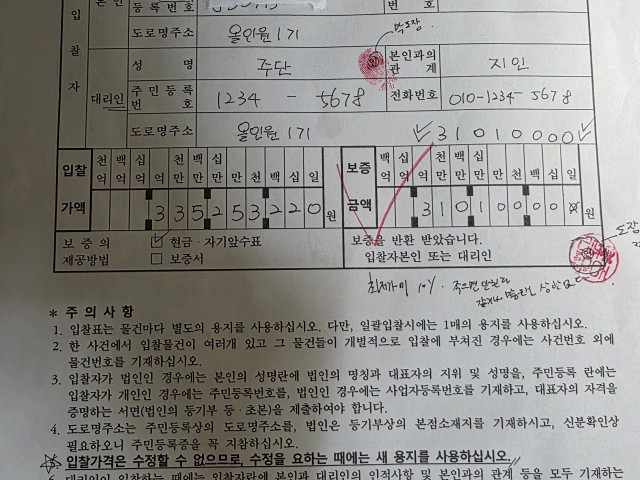 등록번호
번 호
입찰자
도로명주소 올인원 171
막도장
대리인
성 명 주단 본인과의 관 계 지인
주민등록 번 호 1234 - 5678 전화번호 010-1234-5678
도로명주소 올인원 171
31010000
입찰가액 천억 백억 십억 억 천만 백만 십만 만 천 백 십 일
335253220 원
보증금액 백억 십억 억 천만 백만 십만 만 천 백 십 일
원
보증의 제공방법
☑ 현금·자기앞수표
□ 보증서
보증을 반환 받았습니다.
입찰자 본인 또는 대리인
도장
최저가의 10%.
* 주의사항
1. 입찰표는 물건마다 별도의 용지를 사용하십시오. 다만, 일괄입찰시에는 1매의 용지를 사용하십시오.
2. 한 사건에서 입찰물건이 여러개 있고 그 물건들이 개별적으로 입찰에 부쳐진 경우에는 사건번호 외에
물건번호를 기재하십시오.
3. 입찰자가 법인인 경우에는 본인의 성명란에 법인의 명칭과 대표자의 지위 및 성명을, 주민등록 란에는
입찰자가 개인인 경우에는 주민등록번호를, 법인인 경우에는 사업자등록번호를 기재하고, 대표자의 자격을
증명하는 서면(법인의 등기부 등·초본)을 제출하여야 합니다.
4. 도로명주소는 주민등록상의 도로명주소를, 법인은 등기부상의 본점소재지를 기재하시고, 신분확인상
필요하오니 주민등록증을 꼭 지참하십시오.
5. 입찰가격은 수정할 수 없으므로, 수정을 요하는 때에는 새 용지를 사용하십시오.
6. 대리인이 입찰하는 때에는 입찰자란에 본인과 대리인의 인적사항 및 본인과의 관계 등을 모두 기재하는